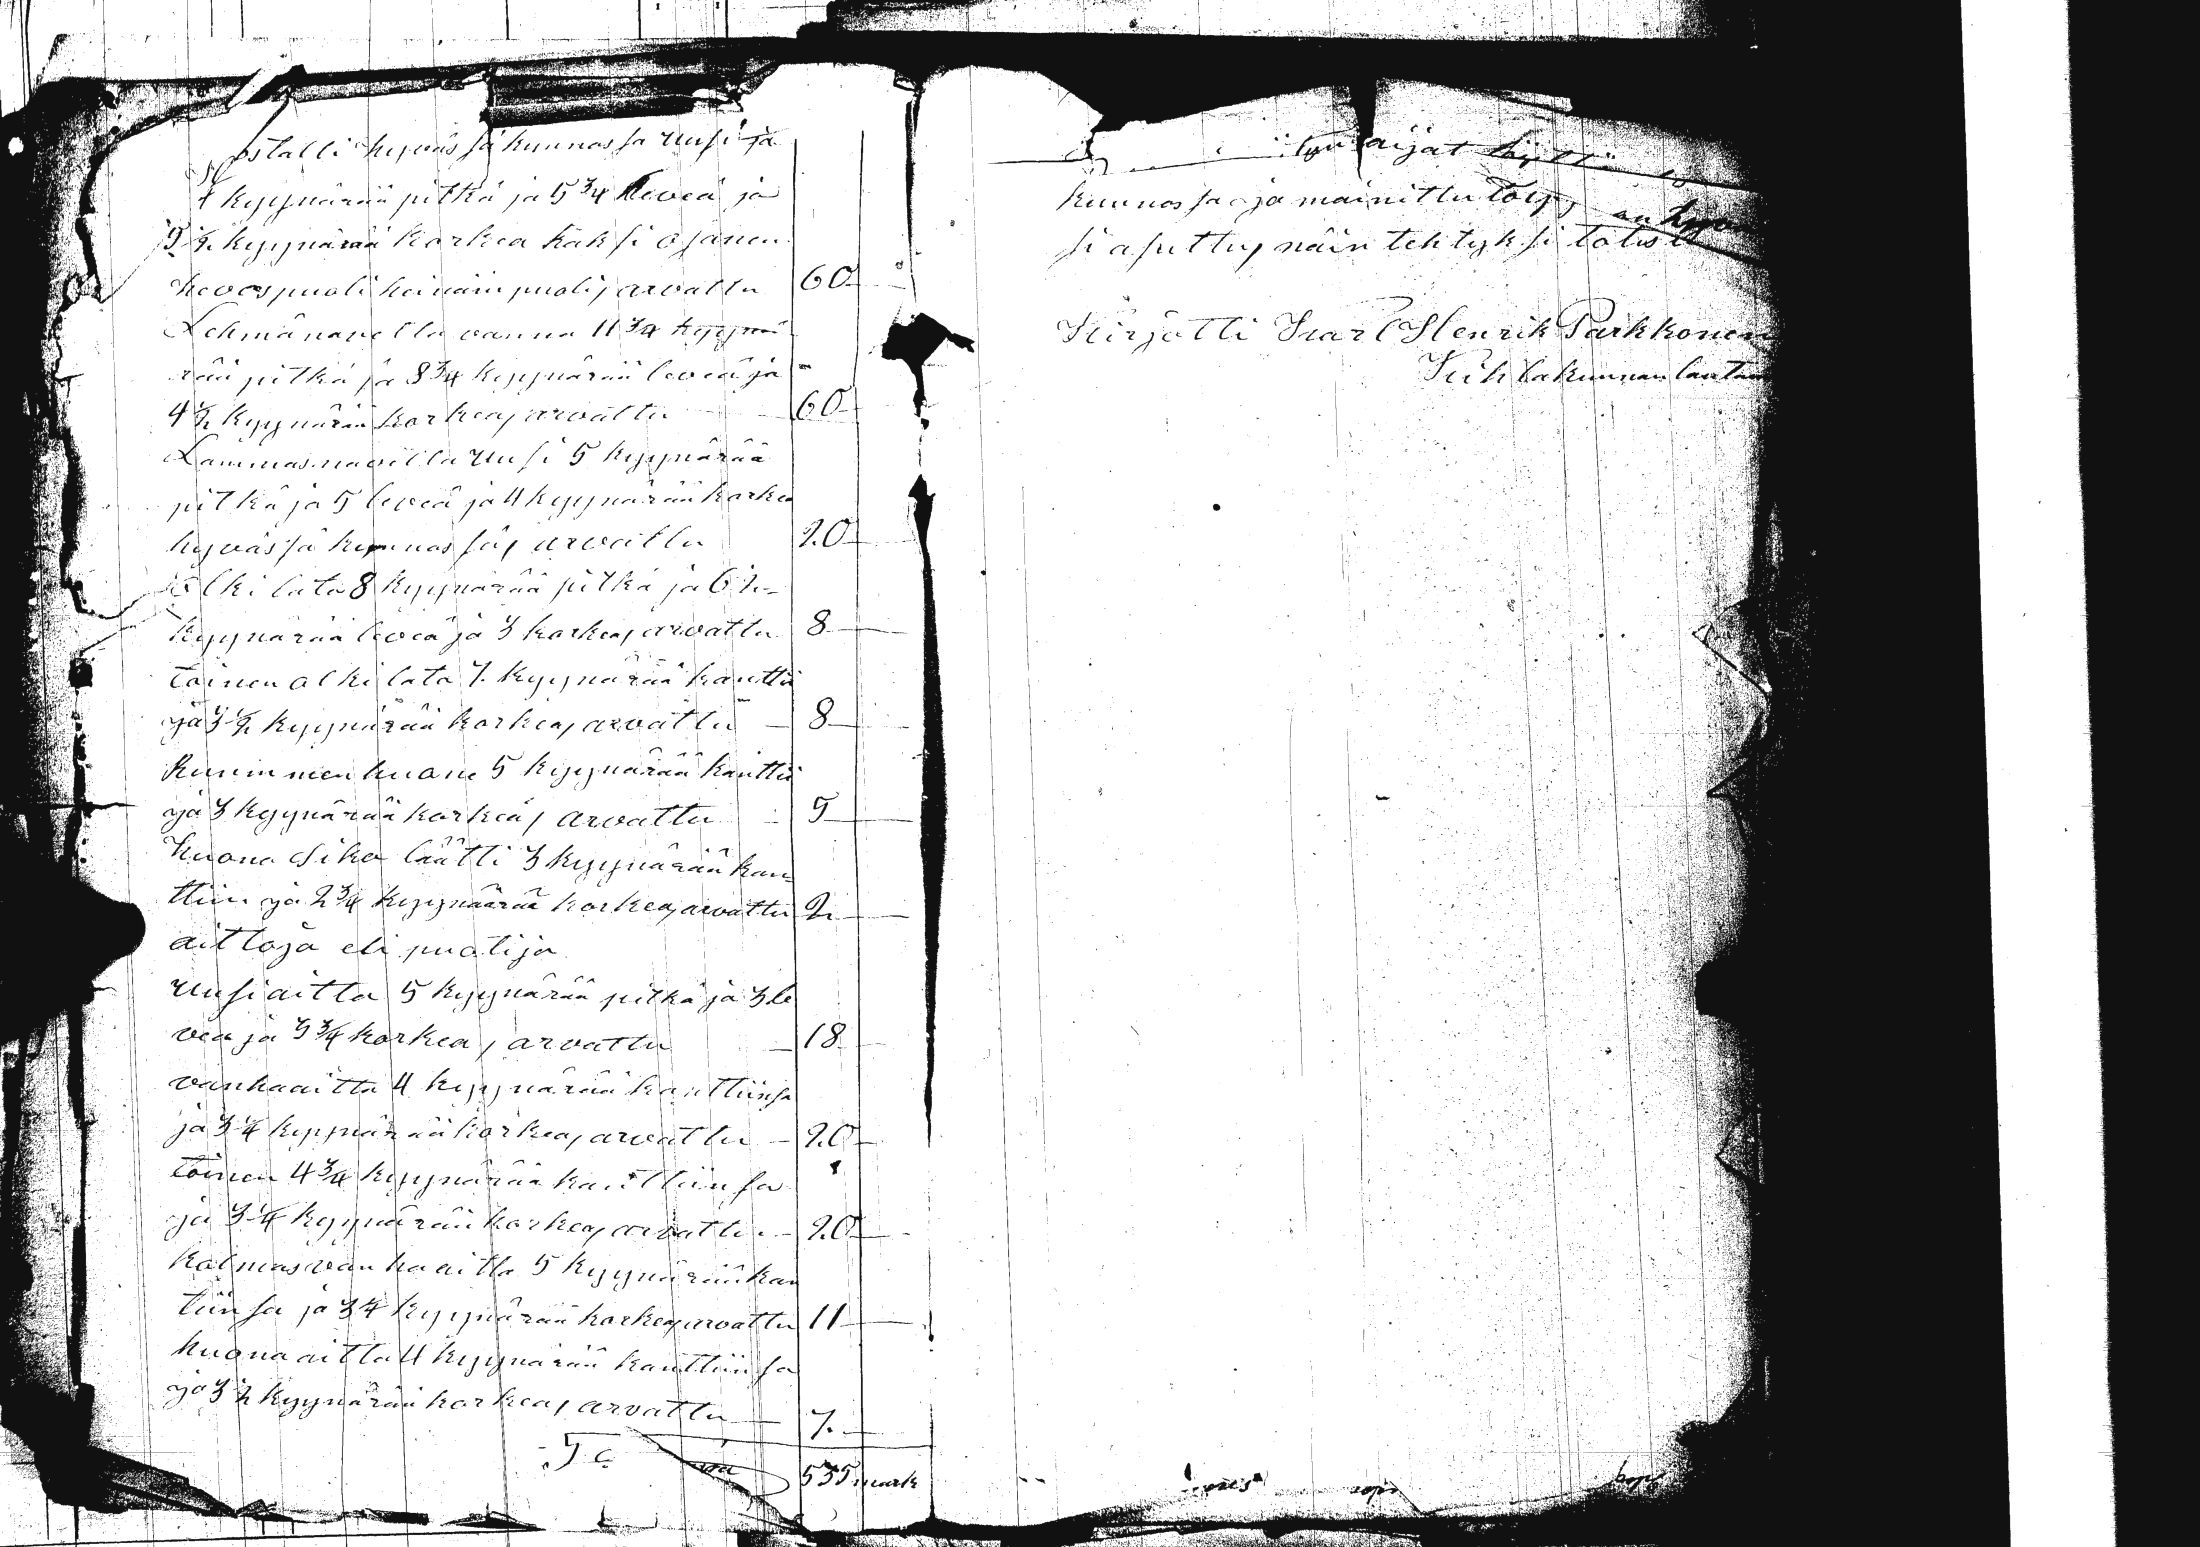 stalli hyväs sä kunnos sa uusi ja
kyynärää pitkä ja 5 3/4 leveä ja
9 1/2 kyynärää korkea kaksi osanen
hevospuoli heinäin puoli, arvattu 60
Lehmänavetta vanna 11 3/4 kyynä
rää pitkä ja 8 3/4 kyynärää leveä ja
4 1/2 kyynärää korkea, arvattu 60
Lammasnavetta uusi 5 kyynärää
pitkä ja 5 leveä ja 4 kyynärää korkea
hyväs sä kunnos sa, arvattu 20
olki lato 8 kyynärää pitkä ja 6 1/2
kyynärää leveä ja 3 korkea, arvattu 8
toinen olki lato 7 kyynärää kanttii
ja 3 1/2 kyynärää korkea, arvattu 8
Ruuminen huone 5 kyynärää kanttii
ja 3 kyynärää korkea, arvattu 5
huono Sika läätti 3 kyynärää kan
ttiin ja 2 3/4 kyynäärää korkea, arvattu 2
aittoja eli puotija
uusi aitta 5 kyynärää pitkä ja 3 le
vea ja 3 3/4 korkea, arvattu 18
vanha aitta 4 kyynärää kanttiinsa
ja 3 1/4 kyynärää korkea, arvattu 20
toinen 4 3/4 kyynärää kanttiinsa
ja 3 1/4 kyynärää korkea, arvattu 20
kolmas vanha aitta 5 kyynärää kan
tiinsa ja 3 1/4 kyynärää korkea, arvattu 11
huono aitta 4 kyynärää kanttiinsa
ja 3 1/2 kyynärää korkea, arvattu 7
535 mark
aijat
kunnos sa ja mainittu
si asuttu, näin tehtyksi
Kirjotti Karl Henrik Parkkonen
Kihlakunnan lautam